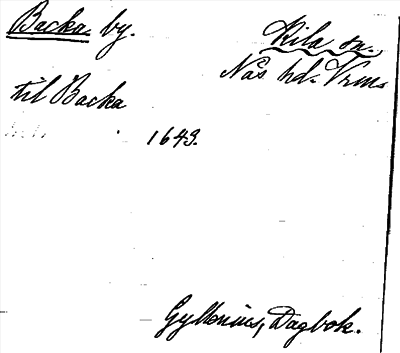 Backa by.
Kila sn.
Näs hd. Vrml
til Backa
1643.
Gyllenius, Dagbok.